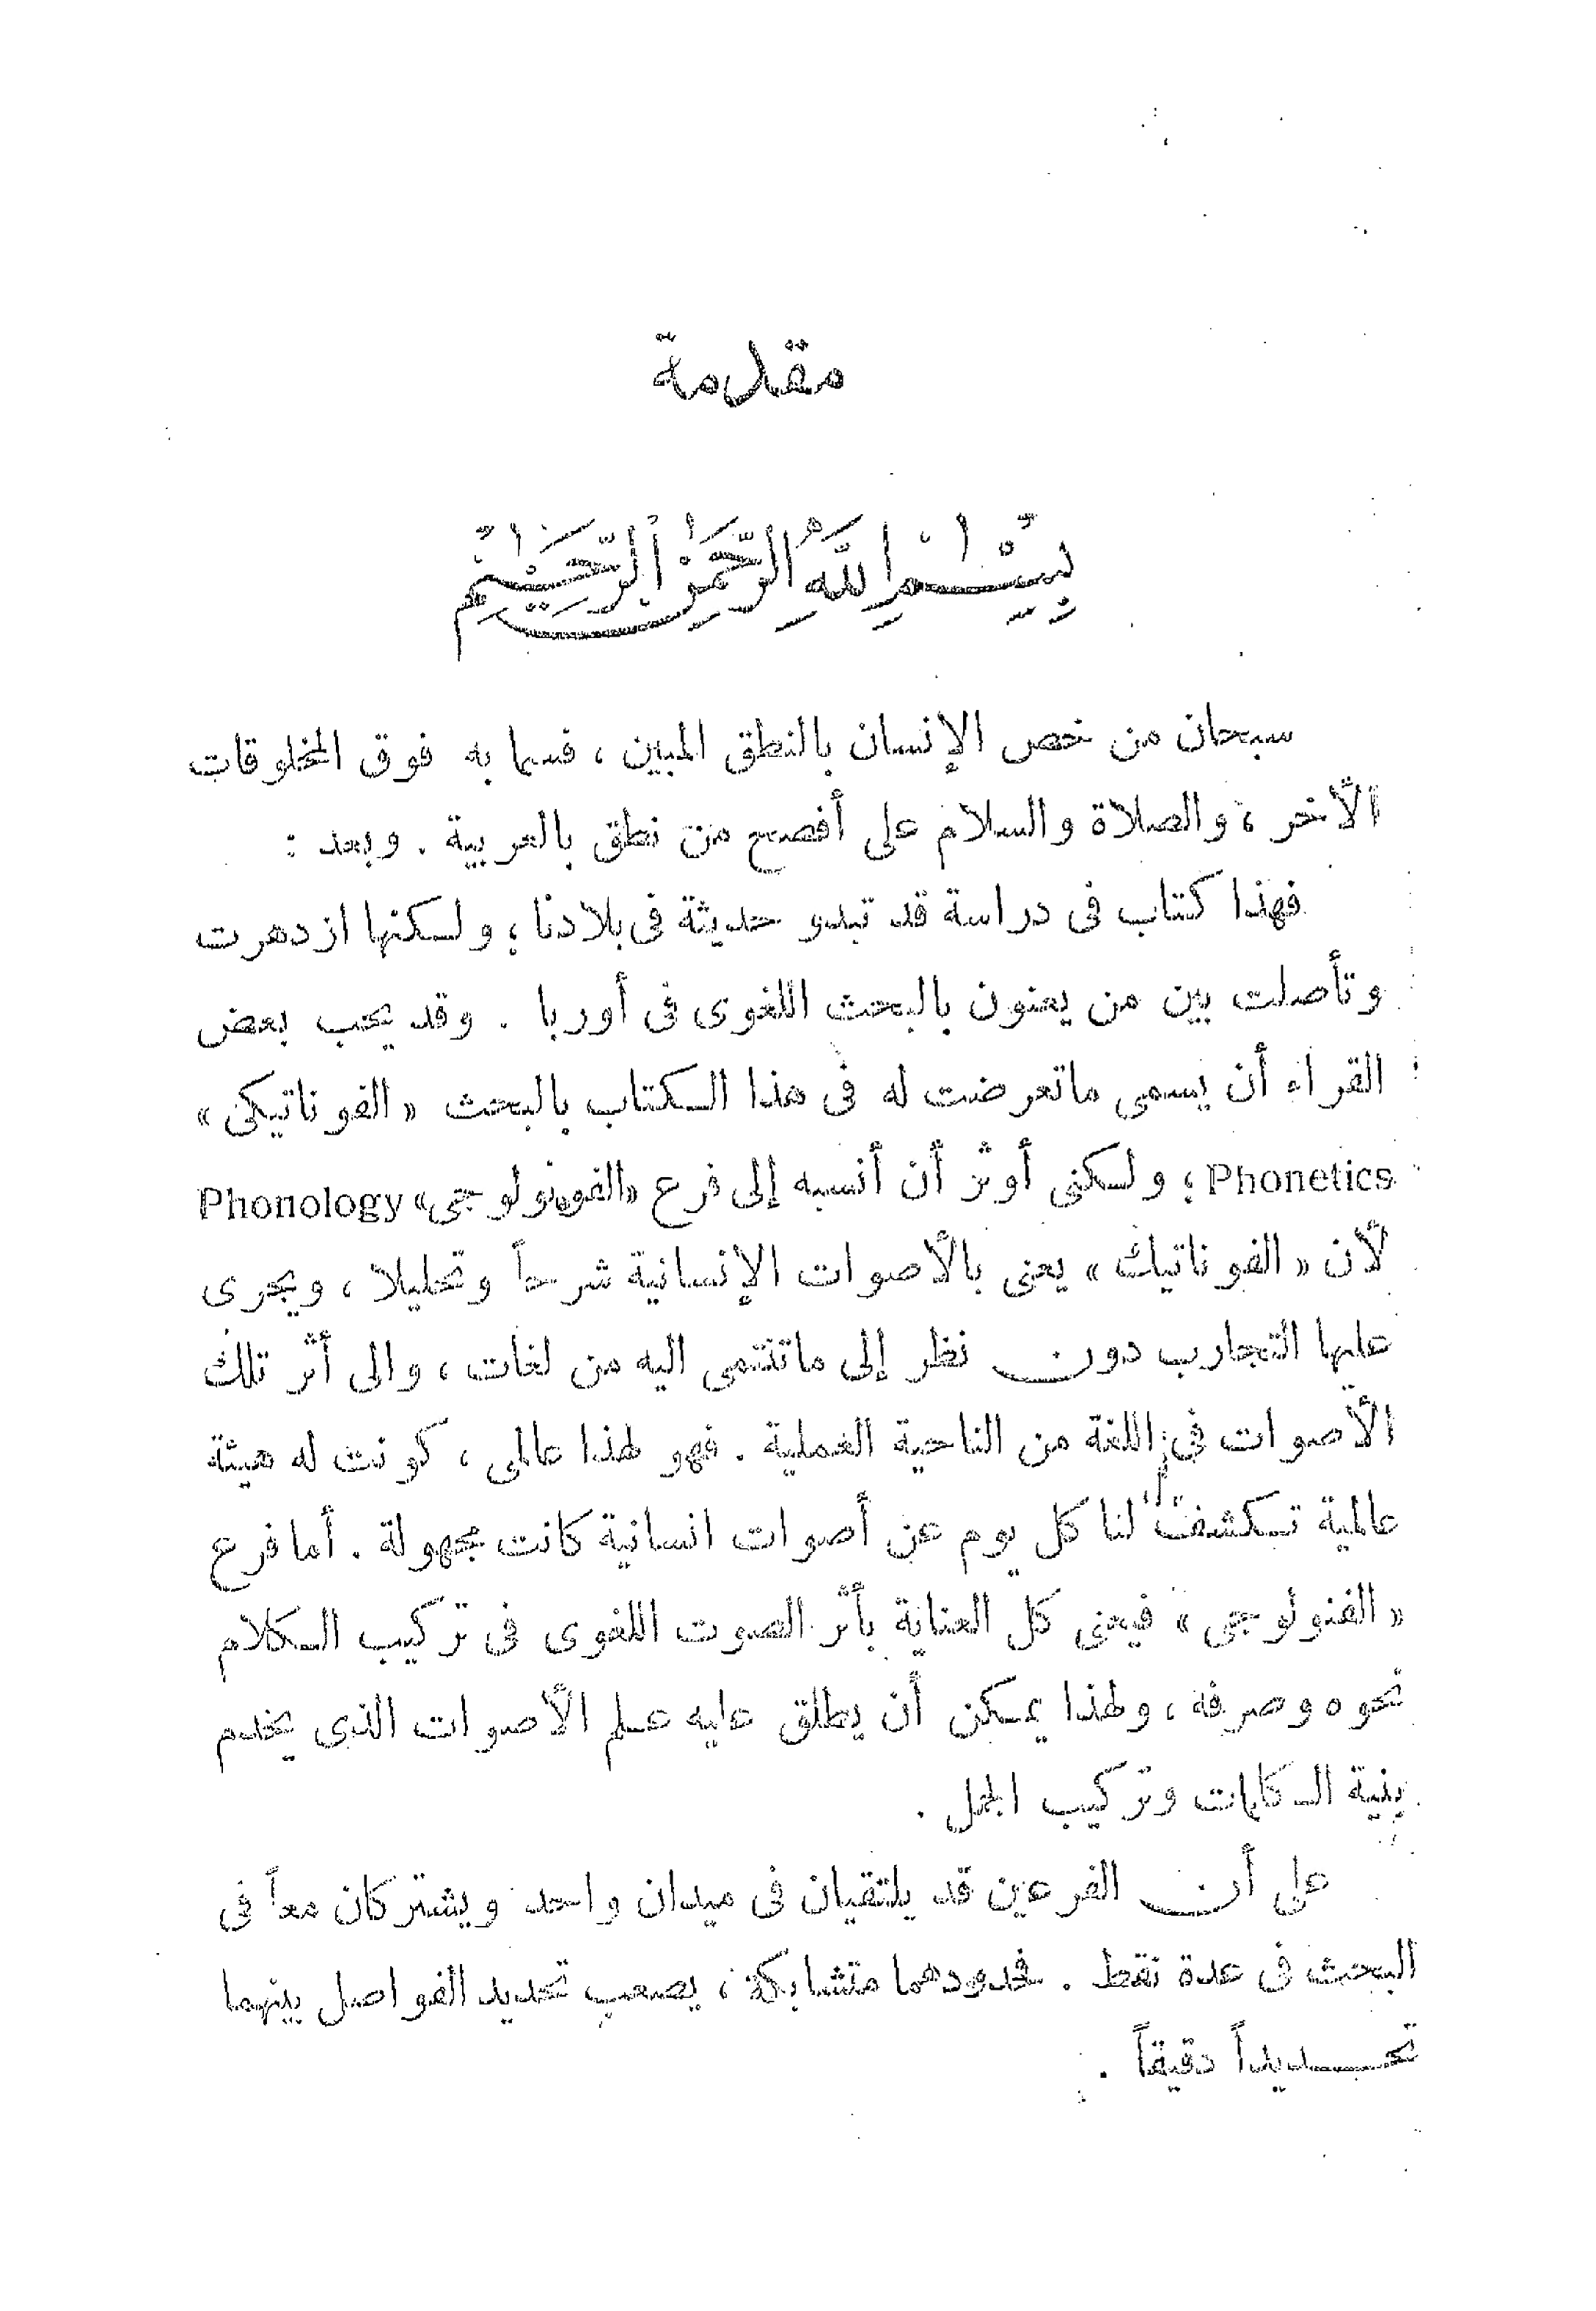 مقدمة
بسم الله الرحمن الرحيم
سبحان من خص الإنسان بالنطق المبين ، فسما به فوق المخلوقات
الأخر ، والصلاة والسلام على أفصح من نطق بالعربية . وبعد :
فهذا كتاب فى دراسة قد تبدو حديثة فى بلادنا ؛ ولكنها ازدهرت
وتأصلت بين من يعنون بالبحث اللغوى فى أوربا . وقد يحب بعض
القراء أن يسمى ماتعرضت له فى هذا الكتاب بالبحث « الفوناتيكى »
Phonetics ؛ ولكنى أوثر أن أنسبه إلى فرع «الفونولوجى» Phonology
لأن « الفوناتيك » يعنى بالأصوات الإنسانية شرحاً وتحليلا ، ويجرى
عليها التجارب دون نظر إلى ماتنتمى اليه من لغات ، والى أثر تلك
الأصوات فى اللغة من الناحية العملية . فهو لهذا عالمى ، كونت له هيئة
عالمية تكشفت لنا كل يوم عن أصوات انسانية كانت مجهولة . أما فرع
« الفنولوجى » فيعنى كل العناية بأثر الصوت اللغوى فى تركيب الكلام
نحوه وصرفه ، ولهذا يمكن أن يطلق عليه علم الأصوات الذى يخدم
بنية الكلمات وتركيب الجمل .
على أن الفرعين قد يلتقيان فى ميدان واحد ويشتركان معاً فى
البحث فى عدة نقط . فحدودهما متشابكة ، يصعب تحديد الفواصل بينهما
تحديداً دقيقاً .